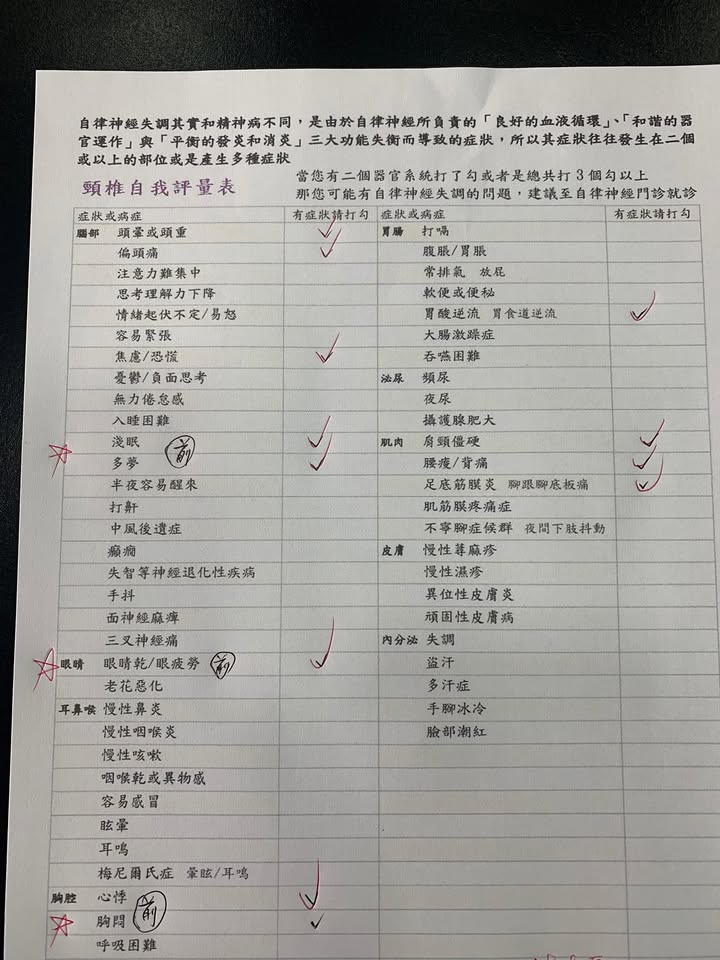 自律神經失調其實和精神病不同，是由於自律神經所負責的「良好的血液循環」、「和諧的器
官運作」與「平衡的發炎和消炎」三大功能失衡而導致的症狀，所以其症狀往往發生在二個
或以上的部位或是產生多種症狀
當您有二個器官系統打了勾或者是總共打 3 個勾以上
頸椎自我評量表 那您可能有自律神經失調的問題，建議至自律神經門診就診
症狀或病症 有症狀請打勾 症狀或病症 有症狀請打勾
腦部 頭暈或頭重 ✓ 胃腸 打嗝
偏頭痛 ✓ 腹脹/胃脹
注意力難集中 常排氣 放屁
思考理解力下降 軟便或便秘
情緒起伏不定/易怒 胃酸逆流 胃食道逆流 ✓
容易緊張 大腸激躁症
焦慮/恐慌 ✓ 吞嚥困難
憂鬱/負面思考 泌尿 頻尿
無力倦怠感 夜尿
入睡困難 攝護腺肥大
淺眠 ✓ 肌肉 肩頸僵硬 ✓
多夢 前 ✓ 腰痠/背痛 ✓
半夜容易醒來 足底筋膜炎 腳跟腳底板痛 ✓
打鼾 肌筋膜疼痛症
中風後遺症 不寧腳症候群 夜間下肢抖動
癲癇 皮膚 慢性蕁麻疹
失智等神經退化性疾病 慢性濕疹
手抖 異位性皮膚炎
面神經麻痺 頑固性皮膚病
三叉神經痛 內分泌 失調
眼睛 眼睛乾/眼疲勞 前 ✓ 盜汗
老花惡化 多汗症
耳鼻喉 慢性鼻炎 手腳冰冷
慢性咽喉炎 臉部潮紅
慢性咳嗽
咽喉乾或異物感
容易感冒
眩暈
耳鳴
梅尼爾氏症 暈眩/耳鳴
胸腔 心悸 ✓
胸悶 前 ✓
呼吸困難